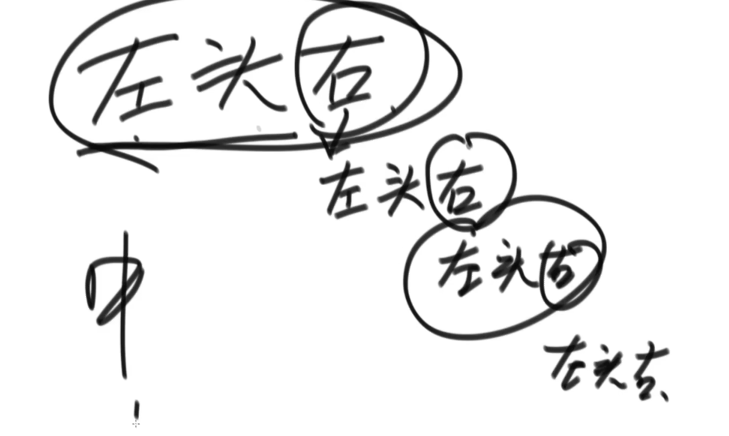 左头右
左头右
左头右
左头右
中